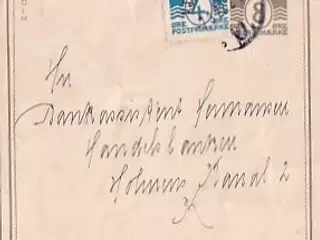 1
8
ØRE
POSTFRIMÆRKE
ØRE
MÆRKE
Hr
Bankassistent Hermansen
Handelsbanken
Holmens Kanal 2
K